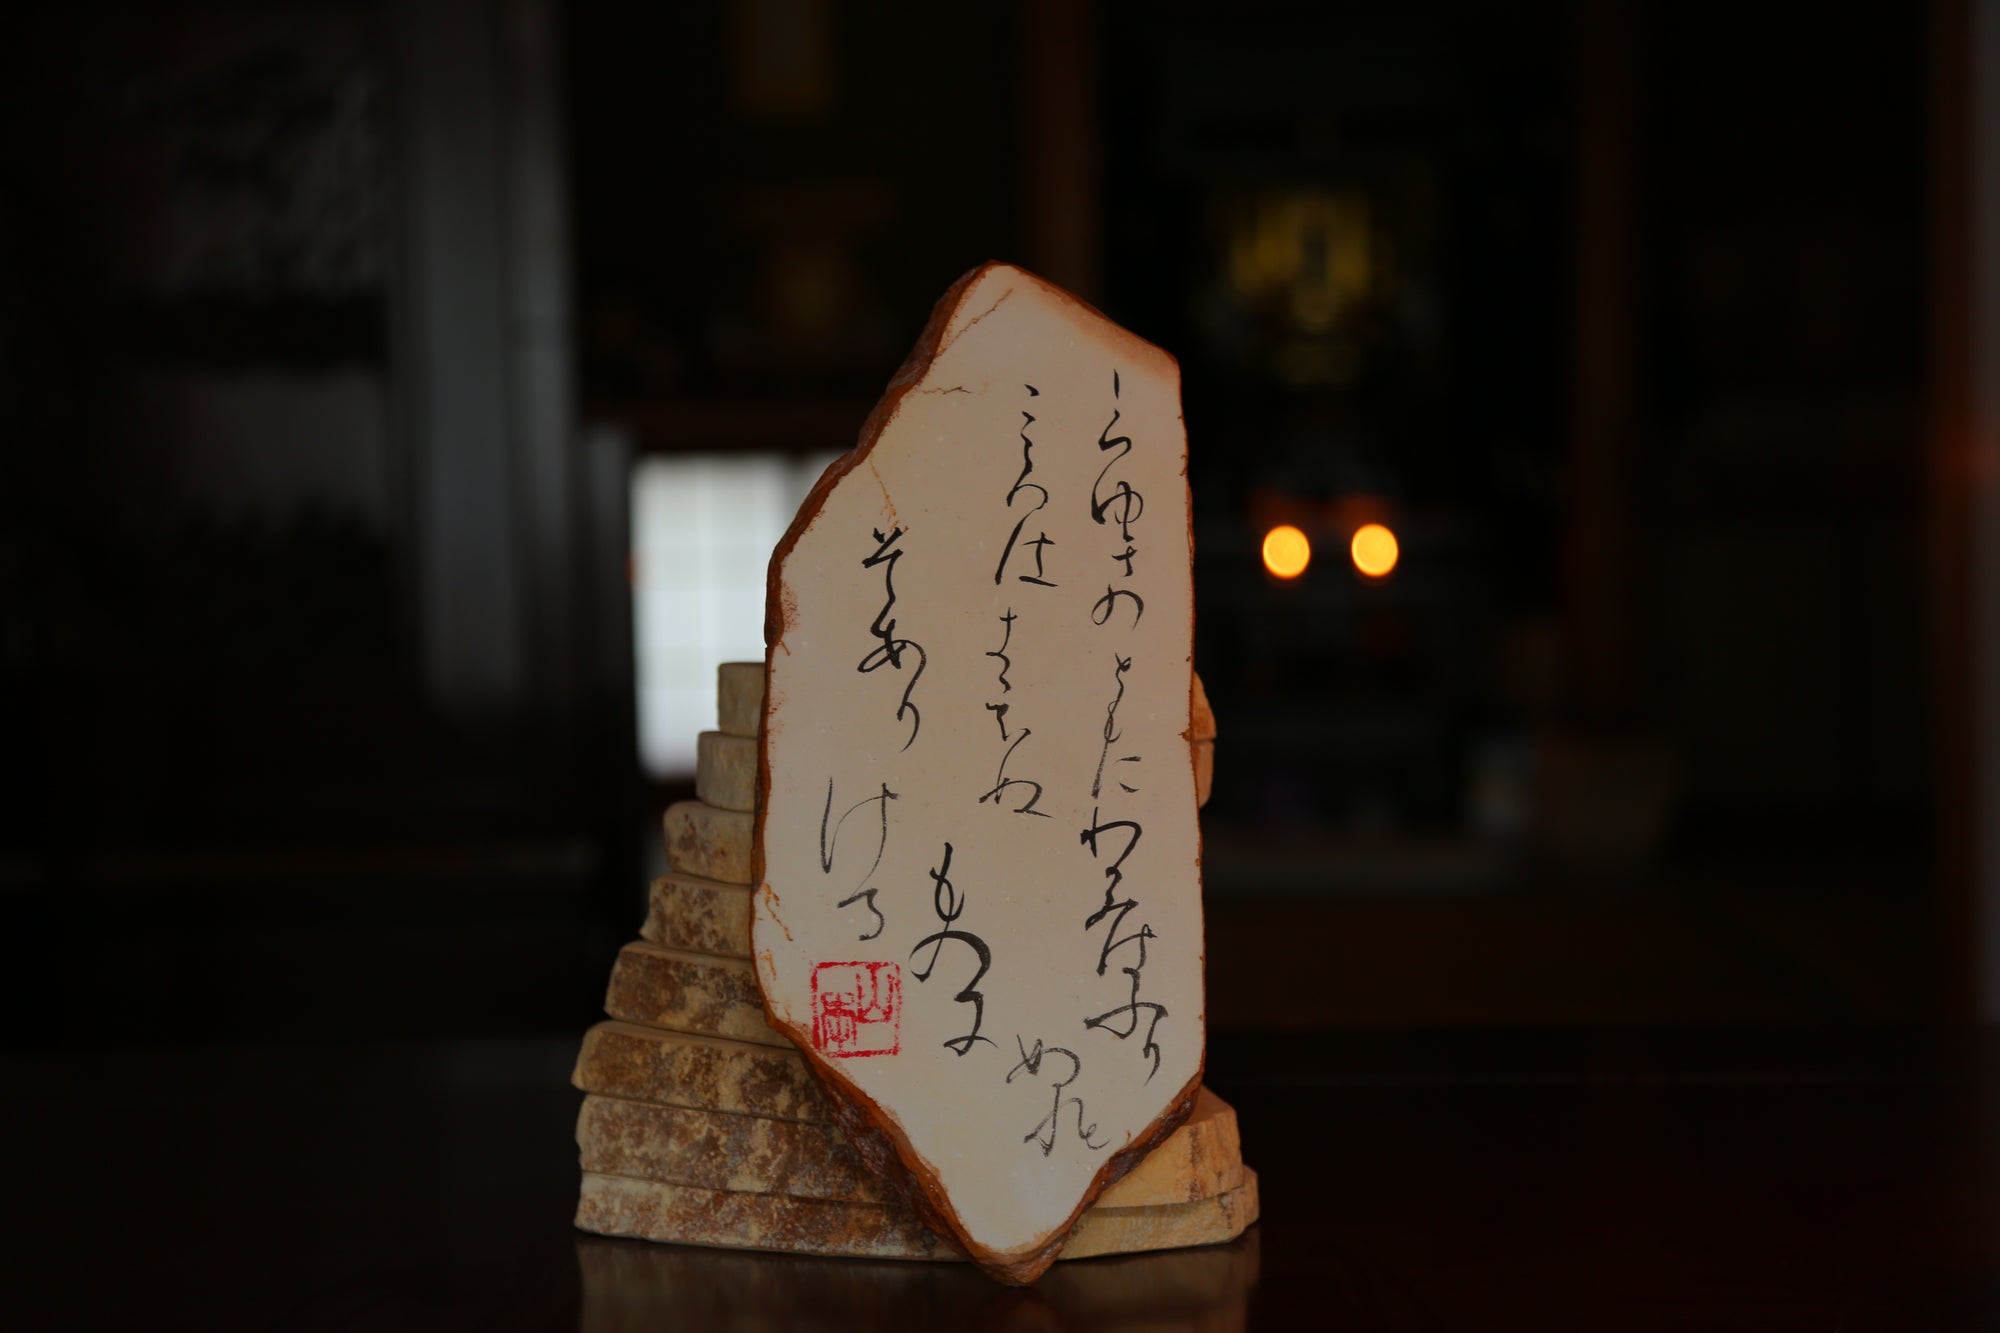 しらゆきのともにわかみはふり
ぬれと
こゝろはきえぬ
ものに
そありける